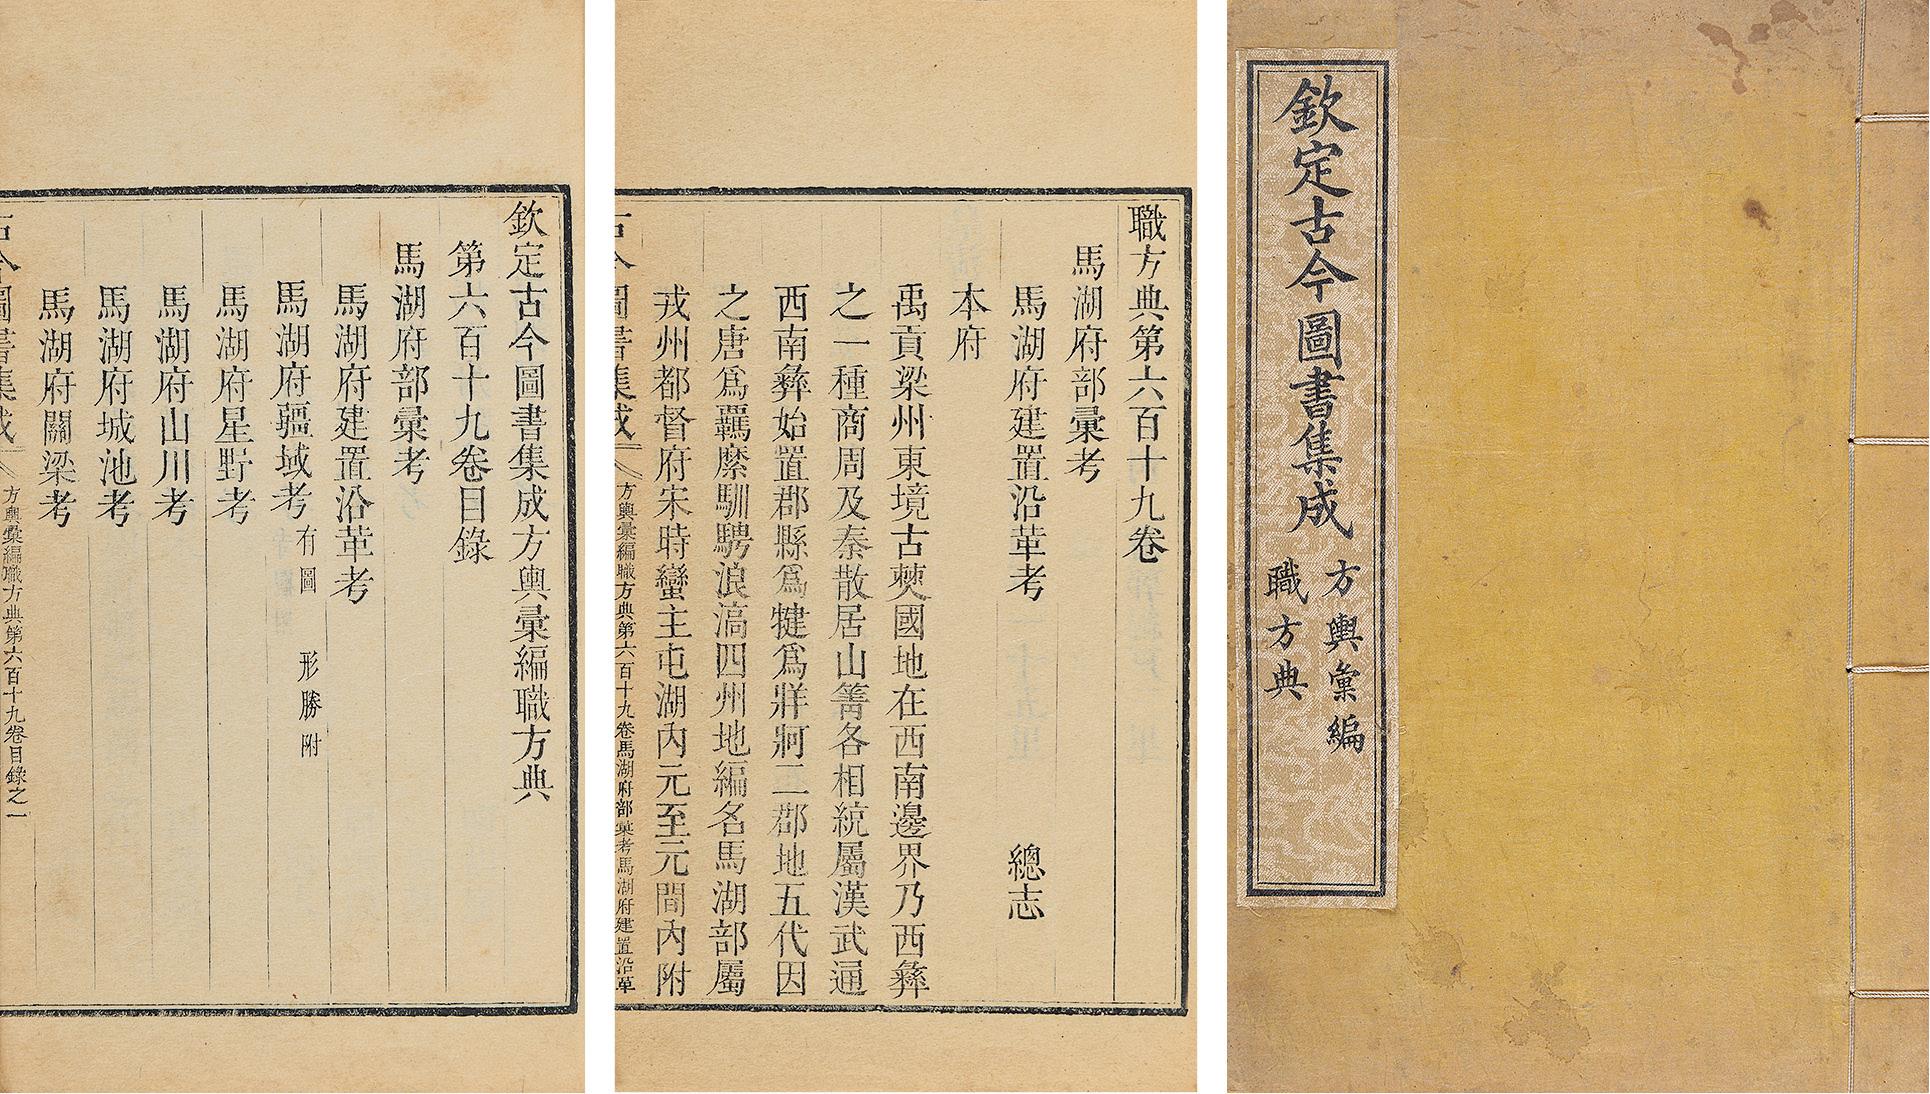 欽定古今圖書集成
方輿彙編
職方典
職方典第六百十九卷
馬湖府部彙考
馬湖府建置沿革考 總志
本府
禹貢梁州東境古僰國地在西南邊界乃西彝
之一種商周及秦散居山箐各相統屬漢武通
西南彝始置郡縣爲犍爲牂牁二郡地五代因
之唐爲羈縻馴騁浪滈四州地編名馬湖部屬
戎州都督府宋時蠻主屯湖內元至元間內附
方輿彙編職方典第六百十九卷馬湖府部彙考馬湖府建置沿革
欽定古今圖書集成方輿彙編職方典
第六百十九卷目錄
馬湖府部彙考
馬湖府建置沿革考
馬湖府疆域考 有圖 形勝附
馬湖府星野考
馬湖府山川考
馬湖府城池考
馬湖府關梁考
方輿彙編職方典第六百十九卷目錄之一